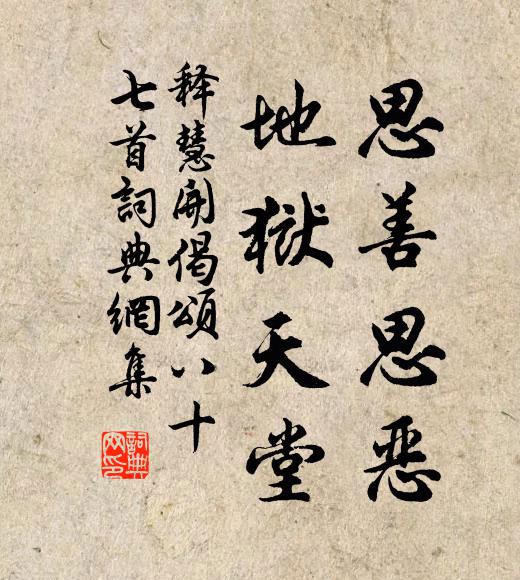 思善思恶
地獄天堂
释慧開偈頌八十
七首詞典網集
詞典网印